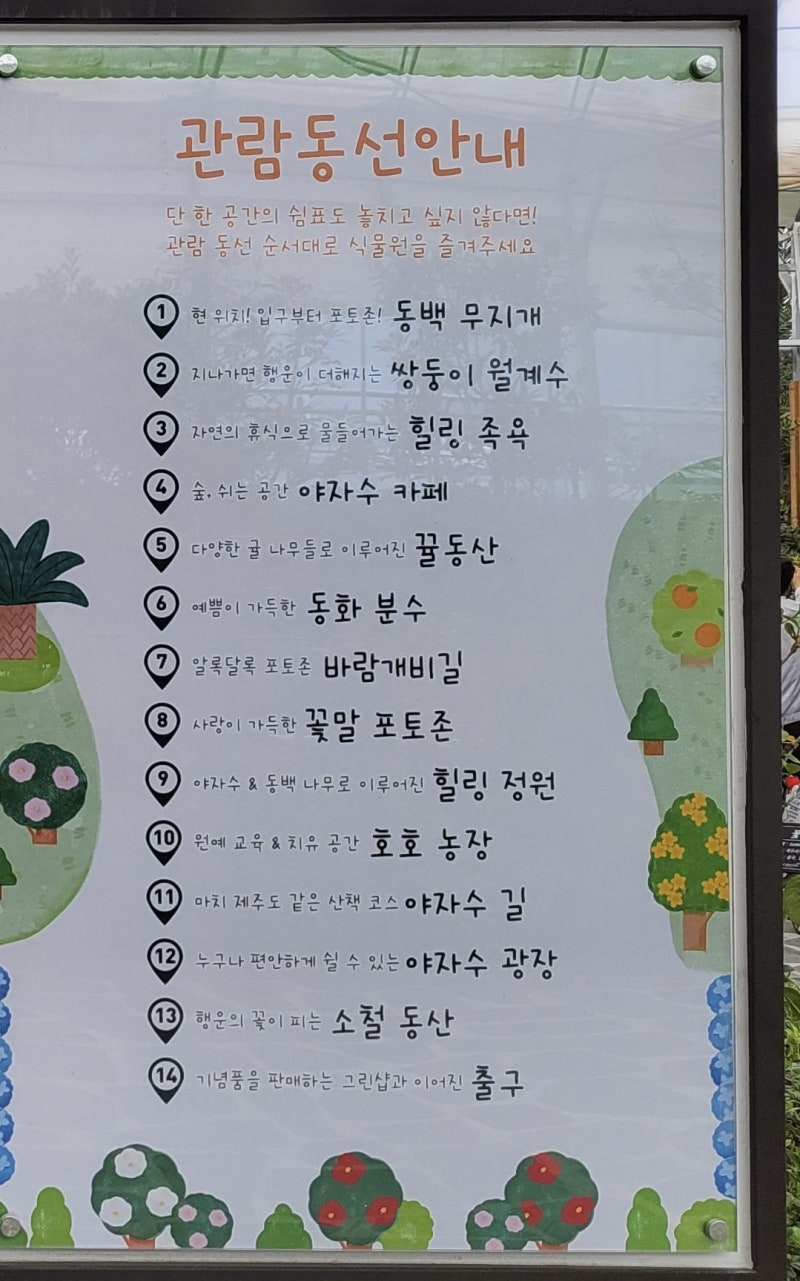 관람동선안내
단 한 공간의 쉼표도 놓치고 싶지 않다면!
관람 동선 순서대로 식물원을 즐겨주세요
1 현 위치! 입구부터 포토존! 동백 무지개
2 지나가면 행운이 더해지는 쌍둥이 월계수
3 자연의 휴식으로 물들어가는 힐링 족욕
4 숲, 쉬는 공간 야자수 카페
5 다양한 귤 나무들로 이루어진 뀰동산
6 예쁨이 가득한 동화 분수
7 알록달록 포토존 바람개비길
8 사랑이 가득한 꽃말 포토존
9 야자수 & 동백 나무로 이루어진 힐링 정원
10 원예 교육 & 치유 공간 호호 농장
11 마치 제주도 같은 산책 코스 야자수 길
12 누구나 편안하게 쉴 수 있는 야자수 광장
13 행운의 꽃이 피는 소철 동산
14 기념품을 판매하는 그린샵과 이어진 출구